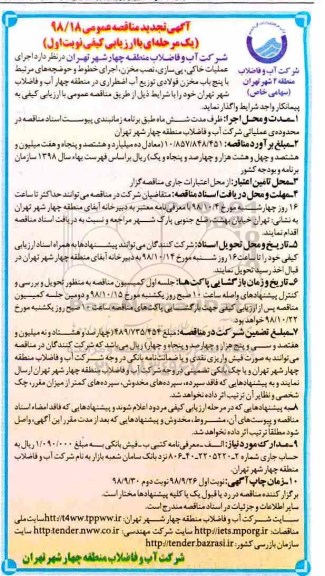 آگهی تجدید مناقصه عمومی ۹۸/۱۸
(یک مرحله‌ای با ارزیابی کیفی نوبت اول)
شرکت آب و فاضلاب
منطقه ۴ شهر تهران
(سهامی خاص)
شرکت آب و فاضلاب منطقه چهار شهر تهران در نظر دارد اجرای
عملیات خاکی، پی‌سازی، نصب مخزن، اجرای خطوط و حوضچه‌های مرتبط
با پنج باب مخزن فولادی توزیع آب اضطراری در منطقه چهار آبفای
شهر تهران خود را با شرایط ذیل از طریق مناقصه عمومی با ارزیابی کیفی به
پیمانکار واجد شرایط واگذار نماید.
۱-مدت و محل اجرا: ظرف مدت شش ماه طبق برنامه زمانبندی پیوست اسناد مناقصه در
محدوده‌ی عملیاتی شرکت آب و فاضلاب منطقه چهار شهر تهران
۲-مبلغ برآورد مناقصه: ۱۰/۸۵۷/۸۴۸/۴۵۱
و هشتصد و چهل و هشت هزار و چهارصد و پنجاه و یک) ریال بر اساس فهرست بهاء سال ۱۳۹۸ سازمان
برنامه و بودجه کشور
۳-محل تامین اعتبار: از محل اعتبارات جاری مناقصه‌گزار
۴-مهلت و محل دریافت اسناد مناقصه: متقاضیان شرکت در مناقصه می‌توانند حداکثر تا ساعت
۱۶ روز چهارشنبه مورخ ۹۸/۱۰/۴ با معرفی‌نامه معتبر به دبیرخانه آبفای منطقه چهار شهر تهران
به نشانی: تهران خیابان بهشت ضلع جنوبی پارک شهر مراجعه و نسبت به دریافت اسناد مناقصه
اقدام نمایند.
۵-تاریخ و محل تحویل اسناد: شرکت کنندگان می‌توانند پیشنهادها به همراه اسناد ارزیابی
کیفی خود را تا ساعت ۱۶ روز شنبه مورخ ۹۸/۱۰/۱۴ به دبیرخانه آبفای منطقه چهار شهر تهران در
قبال اخذ رسید تحویل نمایند.
۶-تاریخ و زمان بازگشایی پاکت‌ها: جلسه اول کمیسیون مناقصه به منظور تحویل و بررسی و
کنترل پیشنهادهای واصله ساعت ۱۰ صبح روز یکشنبه مورخ ۹۸/۱۰/۱۵ و دومین جلسه کمیسیون
مناقصه پس از ارزیابی کیفی جهت بازگشایی پاکت‌های مناقصه ساعت ۱۰ صبح روز یکشنبه مورخ
۹۸/۱۰/۲۲ خواهد بود.
۷-مبلغ تضمین شرکت در مناقصه: مبلغ ۴۸۹/۷۳۵/۴۵۴ (چهارصد و هشتاد و نه میلیون و
هفتصد و سی و پنج هزار و چهارصد و پنجاه و چهار) ریال می‌باشد که شرکت کنندگان در مناقصه
می‌توانند به صورت فیش واریزی نقدی و یا ضمانت‌نامه بانکی در وجه شرکت آب و فاضلاب منطقه
چهار شهر تهران و یا چک بانکی تضمینی در وجه شرکت آب و فاضلاب منطقه چهار شهر تهران ارسال
نمایند و به پیشنهادهایی که فاقد سپرده، سپرده‌های مخدوش، سپرده‌های کمتر از میزان مقرر، چک
شخصی و نظایر آن ترتیب اثر داده نخواهد شد.
۸-به پیشنهادهایی که در مرحله ارزیابی کیفی مردود اعلام شوند و پیشنهادهایی که فاقد امضاء اسناد
مناقصه و پیوست‌های آن، مشروط، مخدوش و پیشنهادهایی که بعد از مدت مقرر این آگهی، واصل
شود مطلقاً ترتیب اثر داده نخواهد شد.
۹-مدارک مورد نیاز: الف-معرفی‌نامه کتبی ب-فیش بانکی به مبلغ ۱/۰۹۰/۰۰۰ ریال به
حساب جاری شماره نزد بانک سامان شعبه بازار به نام شرکت آب و فاضلاب
منطقه چهار شهر تهران.
۱۰-زمان چاپ آگهی: نوبت اول ۹۸/۹/۲۶ نوبت دوم ۹۸/۹/۳۰
برگزار کننده مناقصه در رد یا قبول یک یا کلیه پیشنهادها مختار است.
سایر اطلاعات و جزئیات در اسناد مناقصه مندرج است.
سایت شرکت آب و فاضلاب منطقه چهار شهر تهران: سایت ملی
مناقصات: http://iets.mporg.ir سایت شرکت مهندسی: سایت
سازمان بازرسی کشور: http://tender.bazrasi.ir
شرکت آب و فاضلاب منطقه چهار شهر تهران